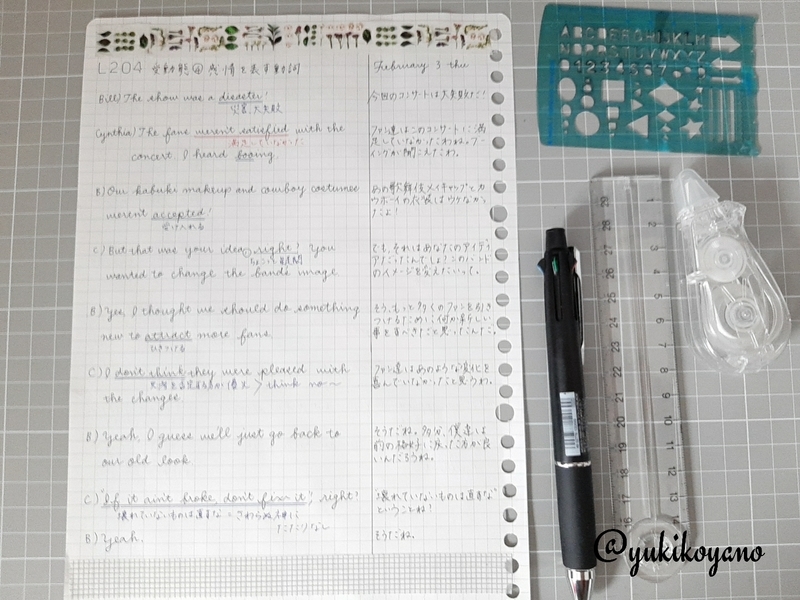 L204 受動態④ 感情を表す動詞
February 3 thu
Bill) The show was a disaster!
災害、大失敗
今回のコンサートは大失敗だ!
Cynthia) The fans weren't satisfied with the
concert. I heard booing.
ファン達はこのコンサートに満
足していなかったわね。ブー
イングが聞こえたわ。
B) Our kabuki makeup and cowboy costumes
weren't accepted!
受け入れる
あの歌舞伎メイキャップとカ
ウボーイの衣装はウケなかっ
たよ!
C) But that was your idea, right? You
wanted to change the band's image.
でも、それはあなたのアイデイ
アだったんでしょ?このバンド
のイメージを変えたいって。
B) Yes, I thought we should do something
new to attract more fans.
ひきつける
そう、もっと多くのファンを引き
つけるために何か新しい
事をすべきだと思ったんだ。
C) I don't think they were pleased with
think no~
the changes.
ファン達はあのような変化を
喜んでいなかったと思うわ。
B) Yeah, I guess we'll just go back to
our old look.
そうだね。多分、僕達は
前の格好に戻った方が良
いんだろうね。
C) "If it ain't broke, don't fix it", right?
壊れていないものは直すな = さわらぬ神に
たたりなし
"壊れていないものは直すな"
ということね?
B) Yeah.
そうだね。
ABCDEFGHIJKLM
NOPQRSTUVWXYZ
29
28
27
26
25
24
23
22
21
20
19
18
17
16
1
2
3
4
5
6
7
8
9
10
11
12
13
14
@yukikoyano